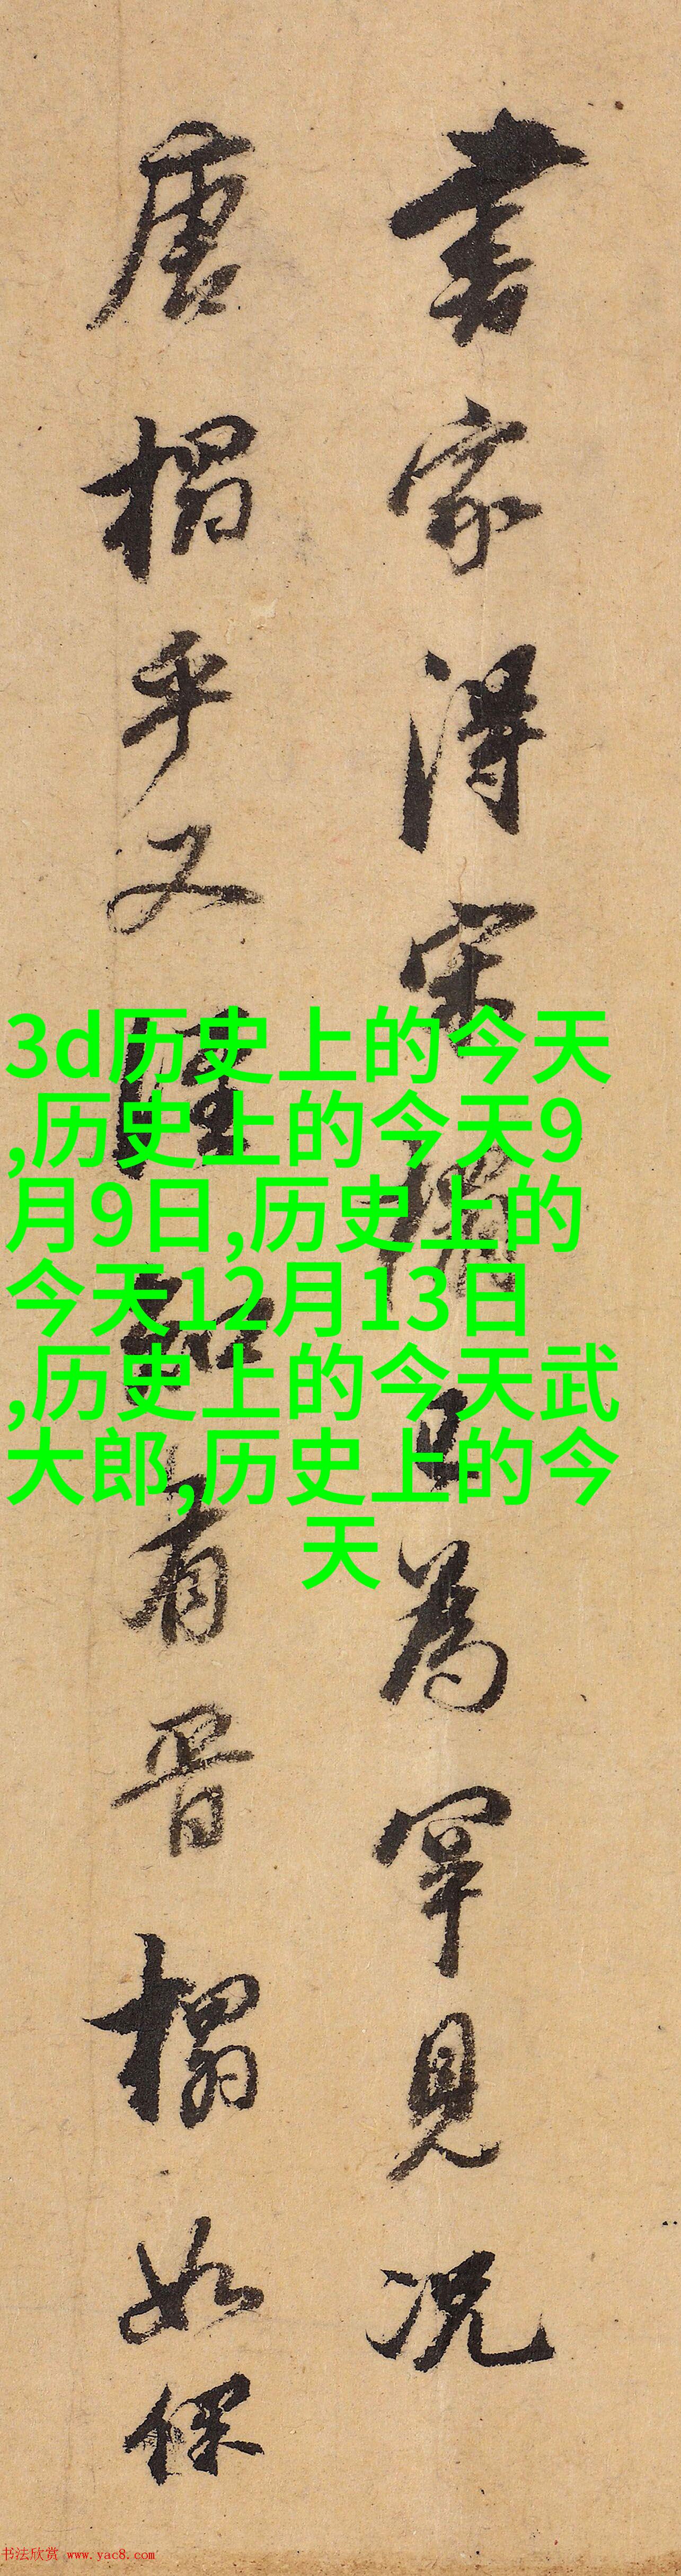 書家得宋搨已為罕見況
唐搨乎又僅知有晉搨如保
3d历史上的今天
,历史上的今天9
月9日,历史上的
今天12月13日
,历史上的今天武
大郎,历史上的今
天
书法欣赏 www.yac8.com